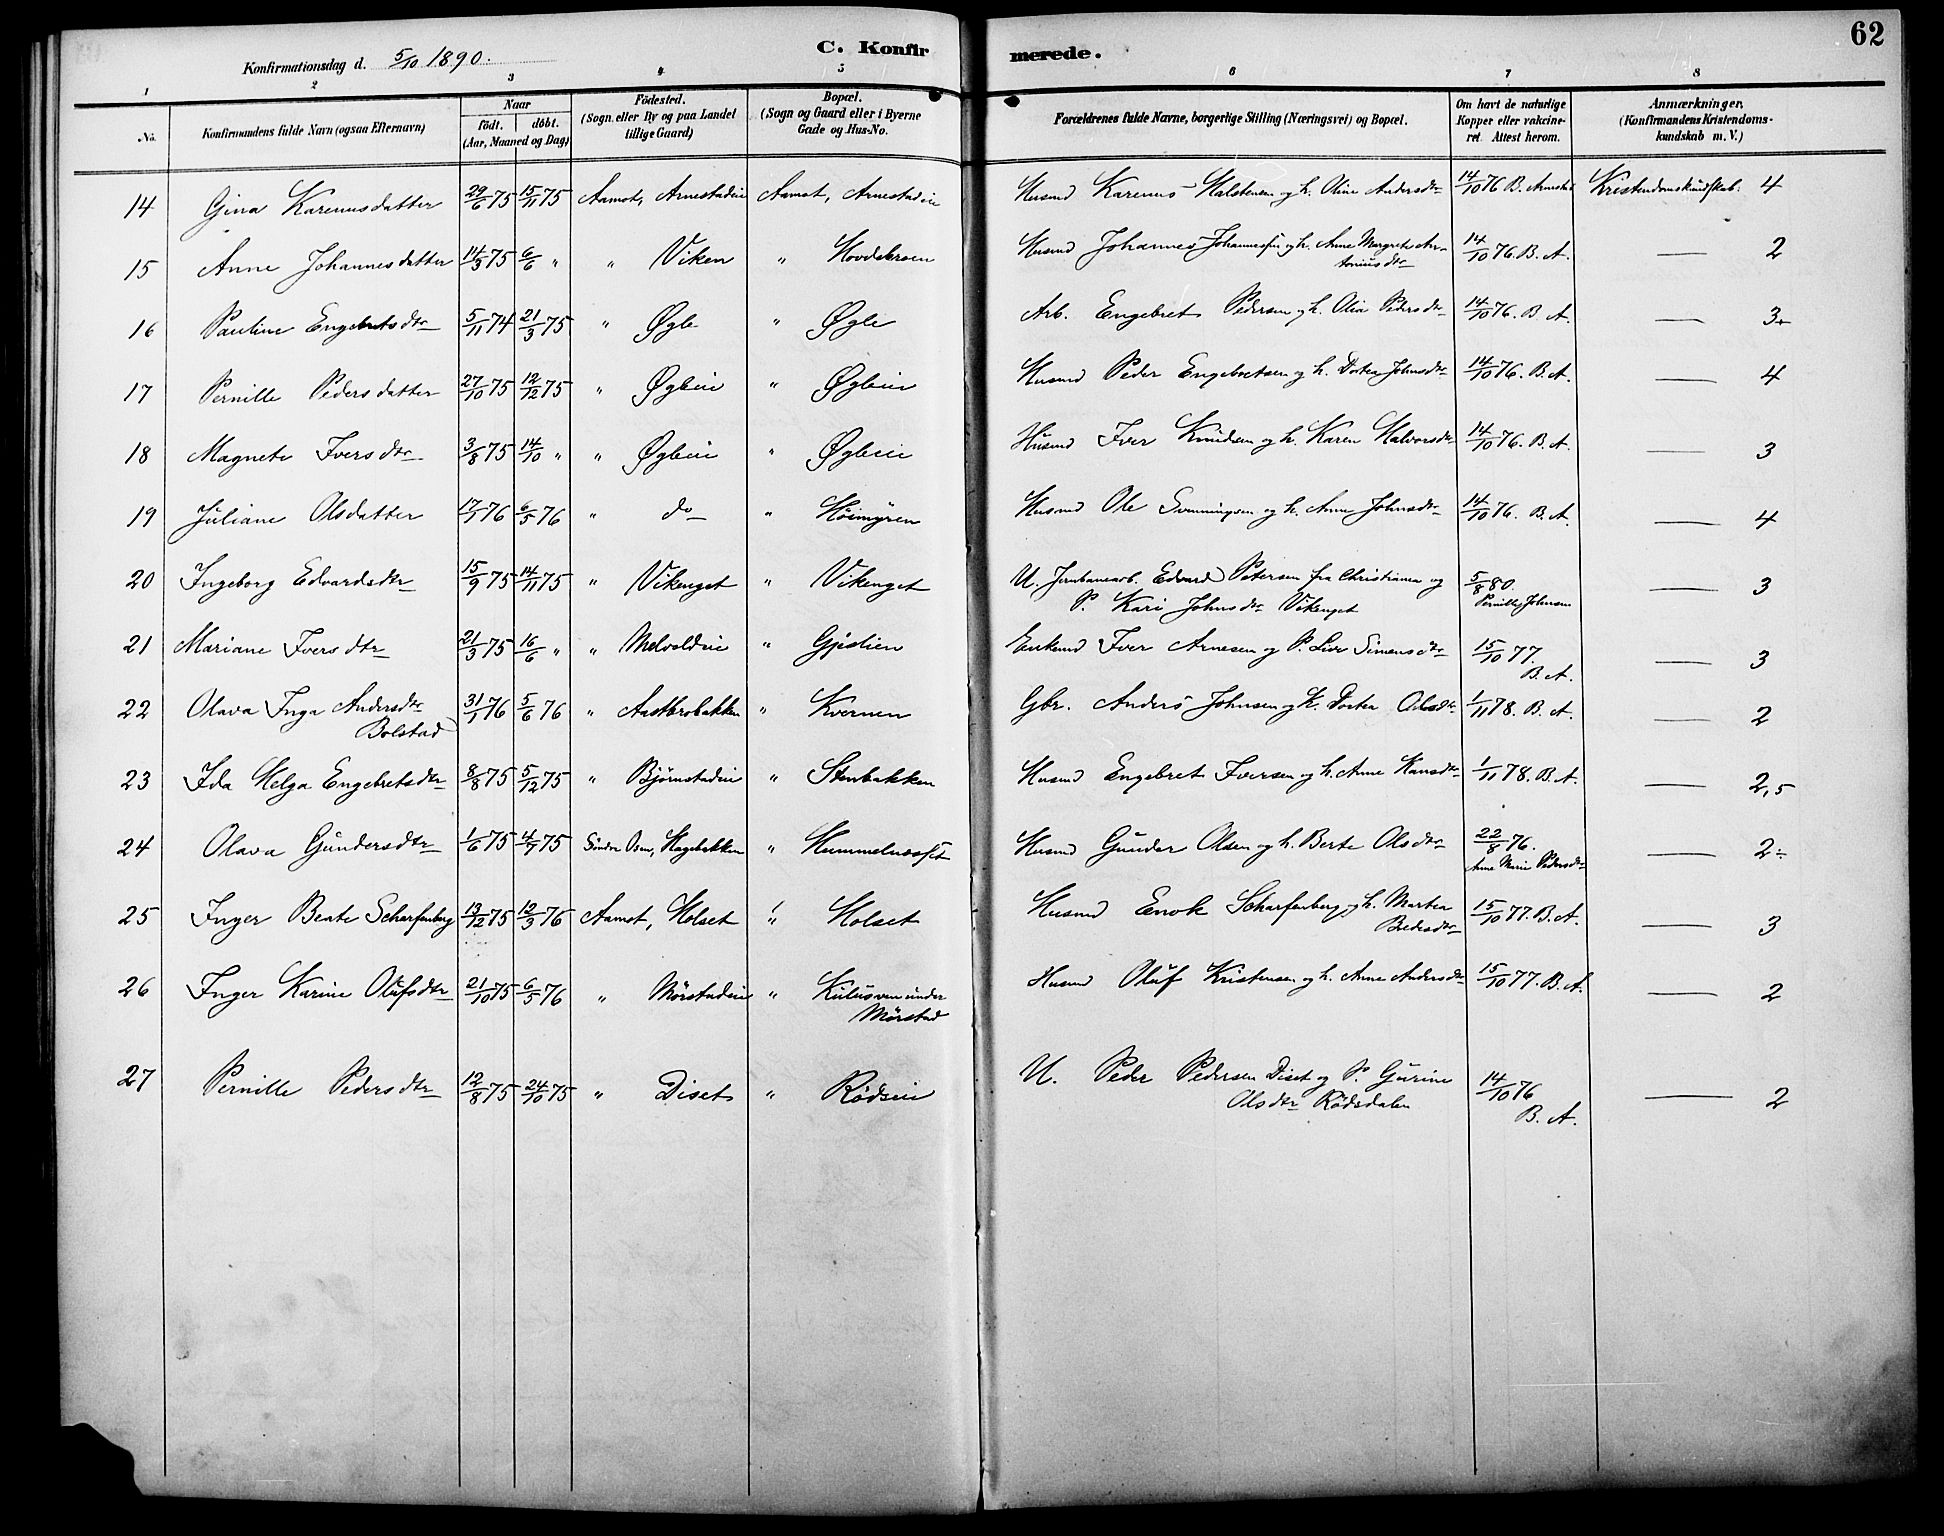 62
C. Konfirmerede.
Konfirmationsdag d. 5/10 1890.
1 2 3 4 5 6 7 8
No. Konfirmandens fulde Navn (ogsaa Efternavn) Naar født. døbt. (Aar, Maaned og Dag) Födested. (Sogn eller By og paa Landet tillige Gaard) Bopæl. (Sogn og Gaard eller i Byerne Gade og Hus-No. Forældrenes fulde Navne, borgerlige Stilling (Næringsvei) og Bopæl. Om havt de naturlige Kopper eller vakcineret. Attest herom. Anmærkninger. (Konfirmandens Kristendomskundskab m. V.)
14 Gina Karenusdatter 29/6 75 15/11 75 Aamot, Arnestadeie Aamot, Arnestadeie Husmd Karenus Halstensen og h. Oline Andersdtr 14/10 76 B. Kristendomskundskab: 4
15 Anne Johannesdatter 14/3 75 6/6 " " Viken " Hovdebroen Husmd Johannes Johannessen og h. Anne Margrete Antoniusdtr 14/10 76. B. A. — 2
16 Pauline Engebretsdtr 5/11 74 21/3 75 " Øgle " Øgle Arb. Engebret Pedersen og h. Olia Pedersdtr 14/10 76. B. A. — 3+
17 Pernille Pedersdatter 27/10 75 12/12 75 " Øgleeie " Øgleeie Husmd Peder Engebretsen og h. Dortea Johnsdtr 14/10 76. B. A. — 4
18 Magnete Iversdtr 3/8 75 14/10 " " Øgleeie " Øgleeie Husmd Iver Knudsen og h. Karen Halvorsdtr 14/10 76. B. A. — 3
19 Juliane Olsdatter 17/1 76 6/5 76 " do " Høimyren Husmd Ole Svenningsen og h. Anne Johnsdtr 14/10 76. B. A. — 4
20 Ingeborg Edvardsdtr 15/9 75 14/11 75 " Vikenget " Vikenget U. Jernbanearb. Edvard Petersen fra Christiania og P. Kari Johnsdtr Vikenget 5/8 80. Pernille Johnsen — 3
21 Mariane Iversdtr 21/3 75 16/6 " " Melvoldeie " Gjeslien Enkemd Iver Arnesen og P. Live Simensdtr 15/10 77. B. A. — 3
22 Olava Inga Andersdtr Bolstad 31/1 76 5/6 76 " Aastbrobakken " Kvernen Gbr. Anders Johnsen og h. Dortea Olsdtr 1/11 78. B. A. — 2
23 Ida Helga Engebretsdtr 8/8 75 5/12 75 " Bjørnstadeie " Stenbakken Husmd Engebret Iversen og h. Anne Hansdtr 1/11 78. B. A. — 2,5
24 Olava Gundersdtr 1/6 75 4/7 75 Søndre Osen, Hagebakken " Husmd Gunder Olsen og h. Berte Olsdtr 22/8 76. Anne Marie Pedersdtr — 2÷
25 Inger Beate Scharfenberg 13/12 75 12/3 76 Aamot, Holset " Holset Husmd Enok Scharfenberg og h. Martea Bredesdtr 15/10 77. B. A. — 3
26 Inger Karine Olufsdtr 21/10 75 6/5 76 " Mørstadeie " Kulusveen under Mørstad Husmd Oluf Kristensen og h. Anne Andersdtr 15/10 77. B. A. — 2
27 Pernille Pedersdtr 12/8 75 24/10 75 " Diset " Rødseie U. Peder Pedersen Diset og P. Gurine Olsdtr Rødsdalen 14/10 76 B. A. — 2